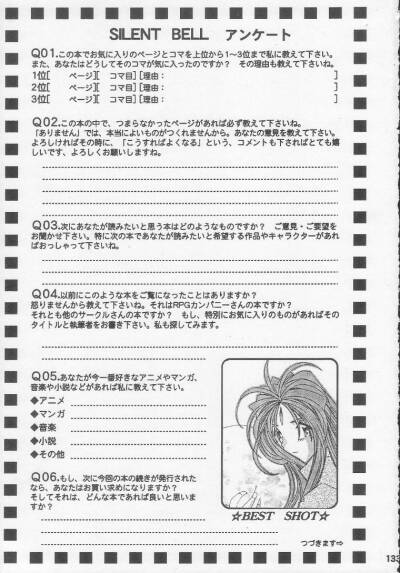 SILENT BELL アンケート
Q01.この本でお気に入りのページとコマを上位から1〜3位まで私に教えて下さい。
また、あなたはどうしてそのコマが気に入ったのですか？ その理由も教えて下さいね。
1位[ ページ][ コマ目][理由： ]
2位[ ページ][ コマ目][理由： ]
3位[ ページ][ コマ目][理由： ]
Q02.この本の中で、つまらなかったページがあれば必ず教えて下さいね。
「ありません」では、本当によいものがつくれませんから。あなたの意見を教えて下さい。
よろしければその時に、「こうすればよくなる」という、コメントも下さればとても嬉
しいです、よろしくお願いしますね。
Q03.次にあなたが読みたいと思う本はどのようなものですか？ ご意見・ご要望を
お聞かせ下さい。特に次の本であなたが読みたいと希望する作品やキャラクターがあれ
ばおっしゃって下さいね。
Q04.以前にこのような本をご覧になったことはありますか？
怒りませんから教えて下さいね。それはRPGカンパニーさんの本ですか？
それとも他のサークルさんの本ですか？ もし、特別にお気に入りのものがあればその
タイトルと執筆者をお書き下さい。私も探してみます。
Q05.あなたが今一番好きなアニメやマンガ、
音楽や小説などがあれば私に教えて下さい。
◆アニメ
◆マンガ
◆音楽
◆小説
◆その他
Q06.もし、次に今回の本の続きが発行された
なら、あなたはお買い求めになりますか？
そしてそれは、どんな本であれば良いと思いま
すか？
☆BEST SHOT☆
つづきます⇨
133